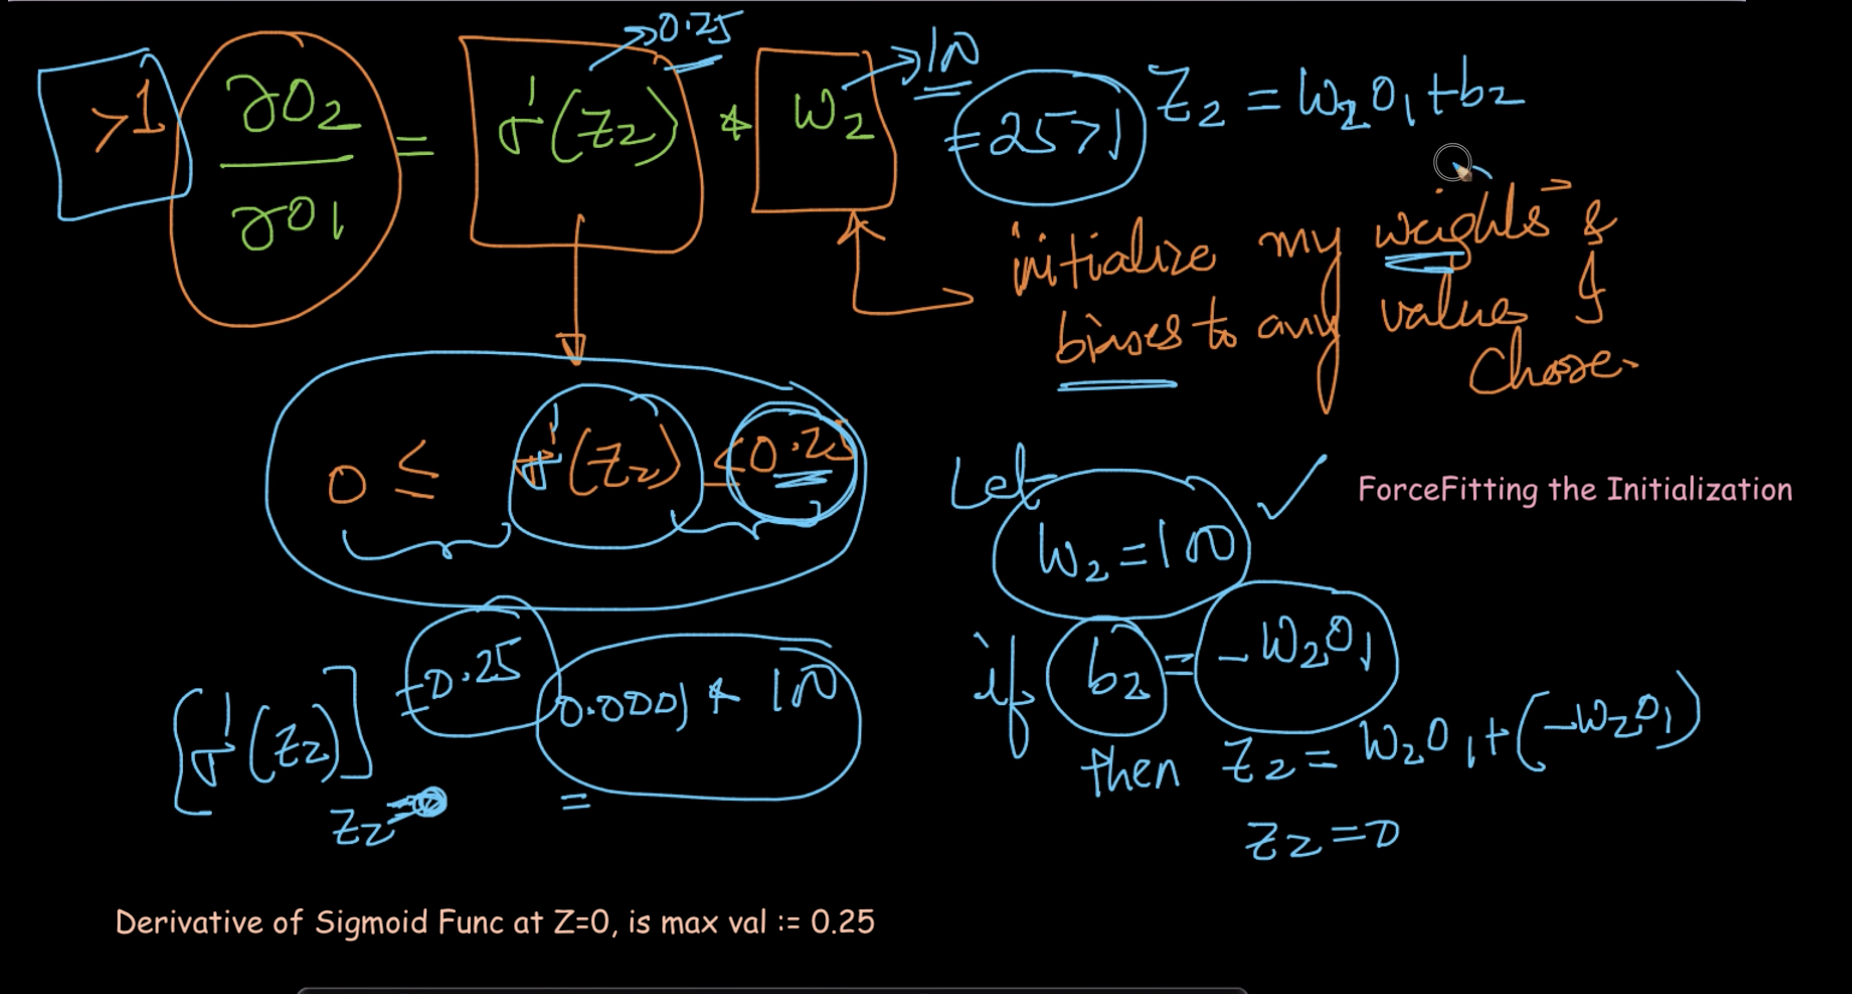 >1 ∂O2/∂O1 = σ'(Z2) * W2 = 25>1
→0.25
→100
Z2 = W2O1+b2
initialize my weights &
biases to any values I
Choose.
0 ≤ σ'(Z2) ≤ 0.25
Let W2=100 ✓
ForceFitting the Initialization
if b2 = -W2O1
then Z2 = W2O1+(-W2O1)
Z2=0
[σ'(Z2)] =0.25
Z2=0
0.0001 * 100
=
Derivative of Sigmoid Func at Z=0, is max val := 0.25